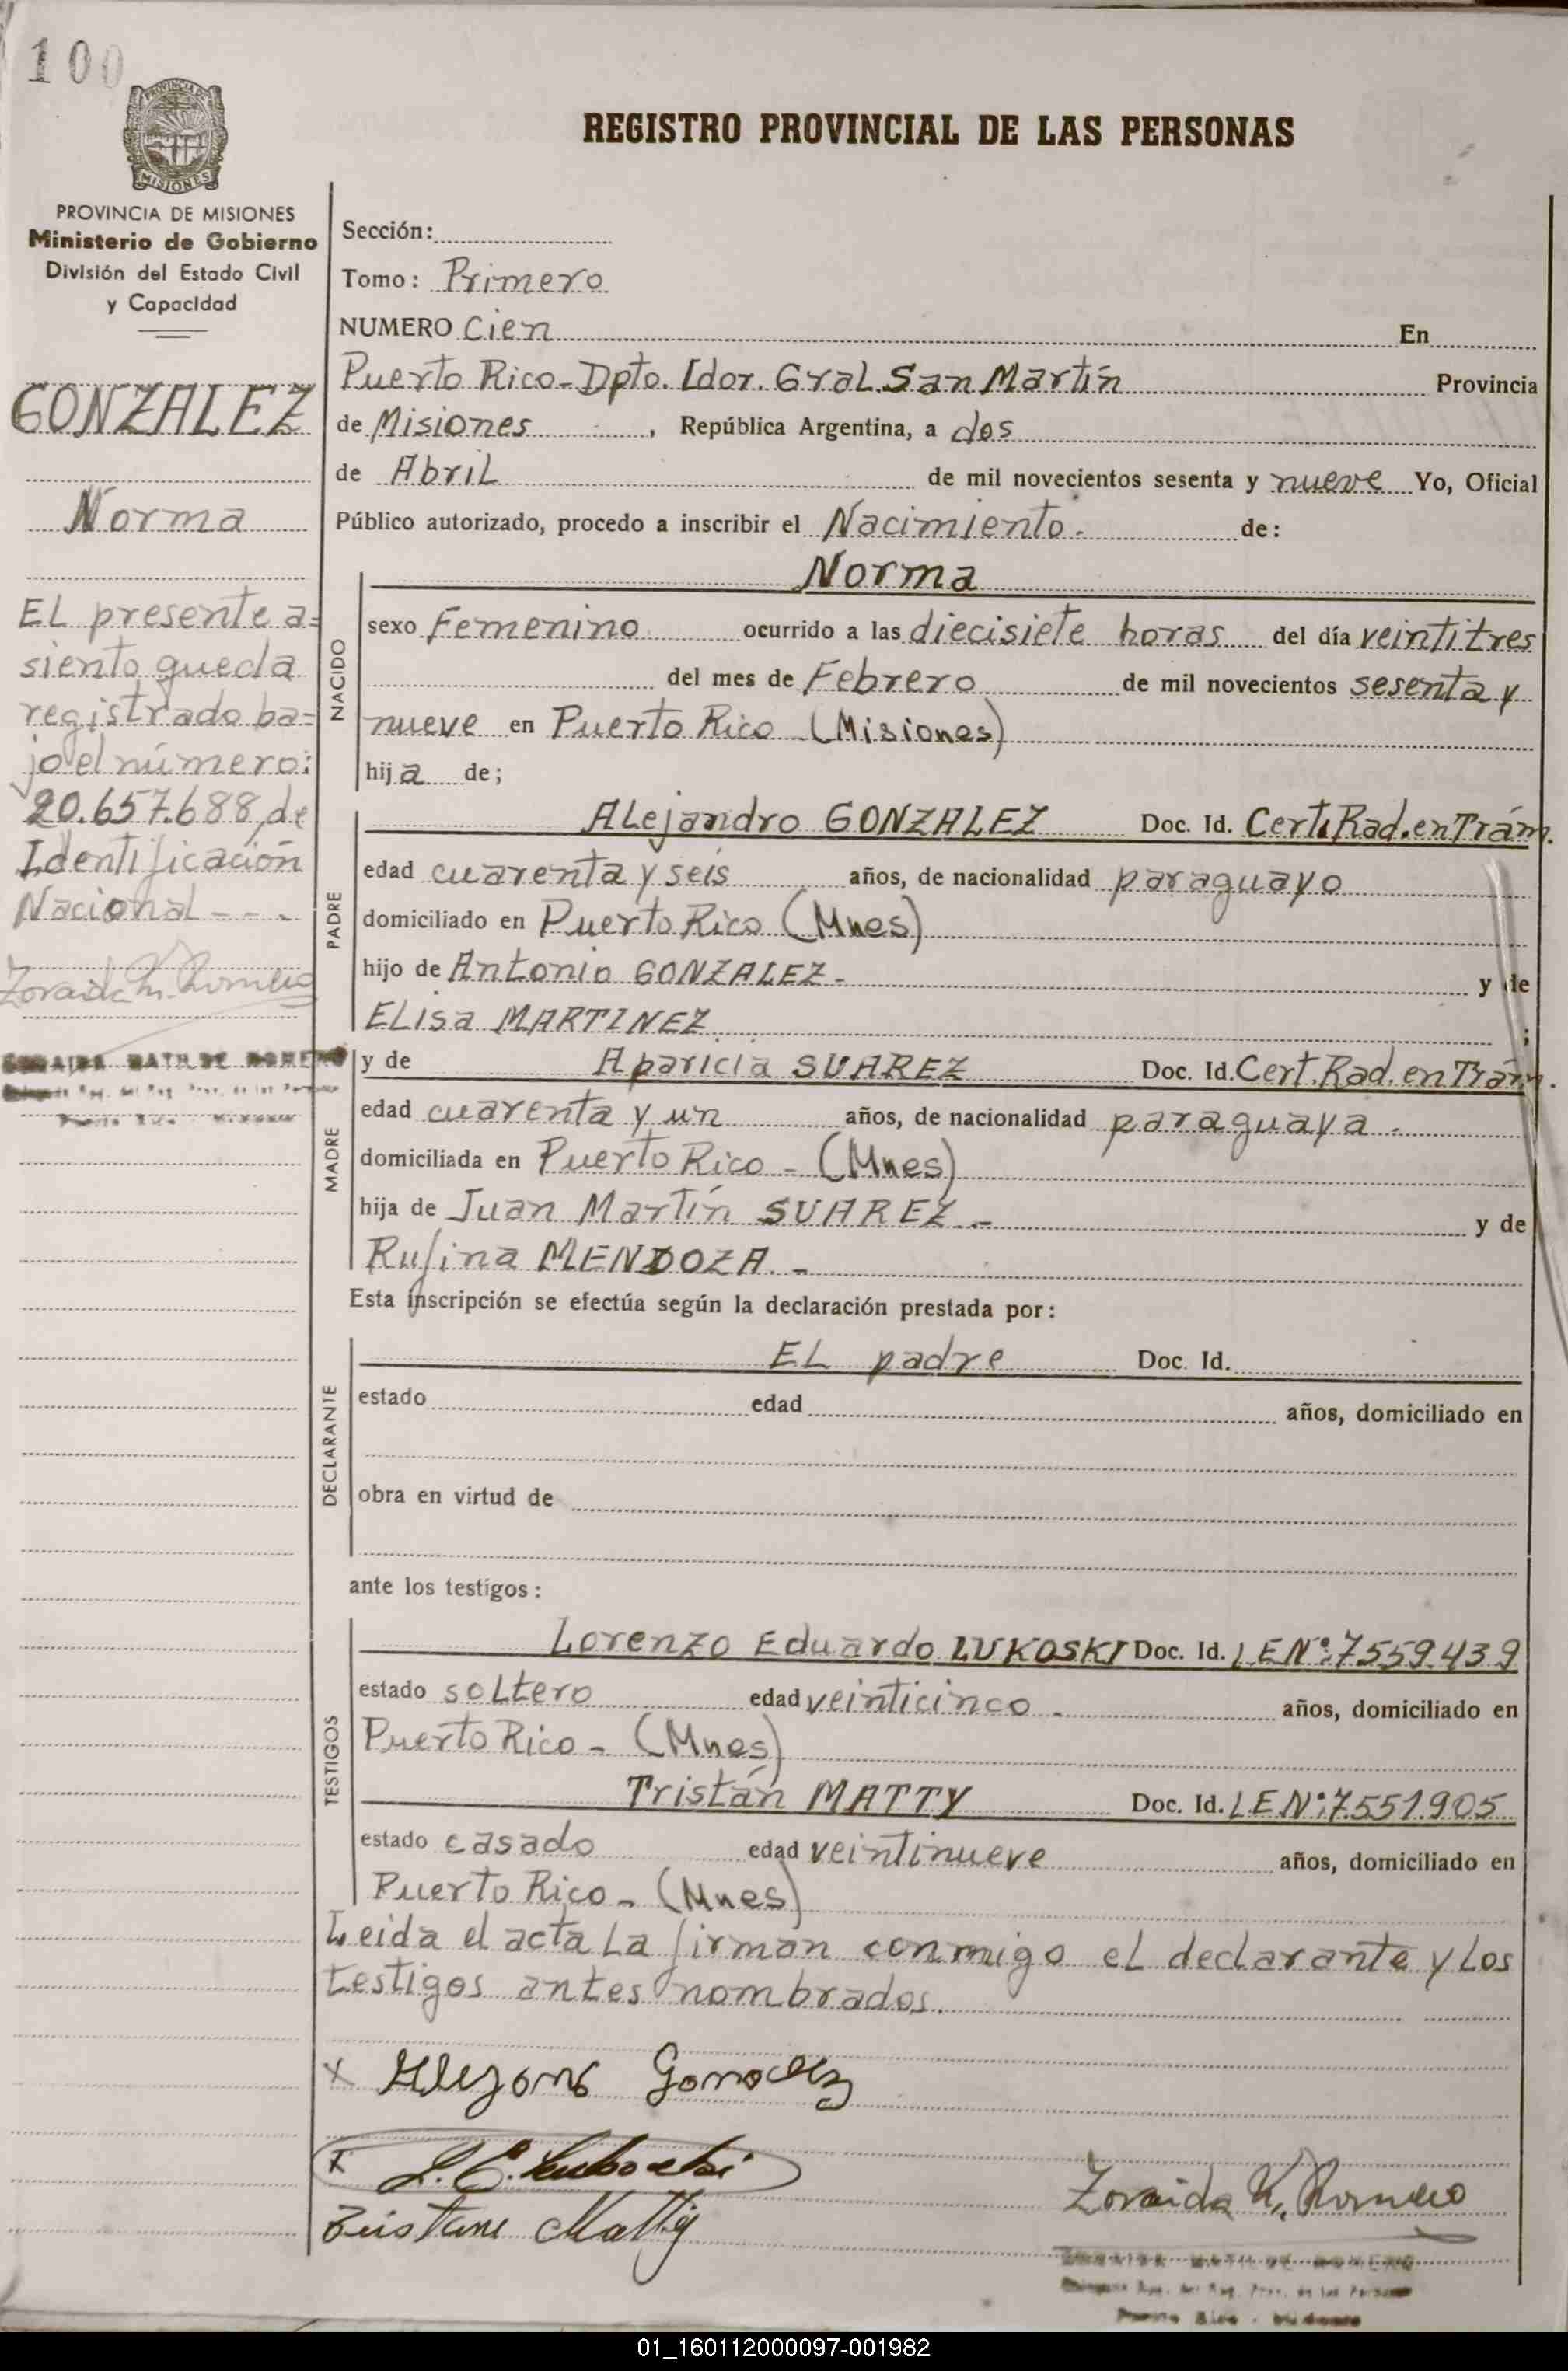 100
PROVINCIA DE MISIONES
Ministerio de Gobierno
División del Estado Civil
y Capacidad
GONZALEZ
Norma
El presente a=
siento queda
registrado ba=
jo el número:
20.657.688, de
Identificación
Nacional - - -
REGISTRO PROVINCIAL DE LAS PERSONAS
Sección:
Tomo: Primero
NUMERO Cien En
Puerto Rico - Dpto. Ldor. Gral. San Martín Provincia
de Misiones, República Argentina, a dos
de Abril de mil novecientos sesenta y nueve Yo, Oficial
Público autorizado, procedo a inscribir el Nacimiento.- de:
Norma
NACIDO
sexo Femenino ocurrido a las diecisiete horas del día veintitres
del mes de Febrero de mil novecientos sesenta y
nueve en Puerto Rico - (Misiones)
hija de;
PADRE
Alejandro GONZALEZ Doc. Id. Cert. Rad. en Trám.
edad cuarenta y seis años, de nacionalidad paraguayo
domiciliado en Puerto Rico (Mnes)
hijo de Antonio GONZALEZ - y de
Elisa MARTINEZ ;
MADRE
y de Aparicia SUAREZ Doc. Id. Cert. Rad. en Trám.
edad cuarenta y un años, de nacionalidad paraguaya -
domiciliada en Puerto Rico - (Mnes)
hija de Juan Martín SUAREZ - y de
Rufina MENDOZA. -
Esta inscripción se efectúa según la declaración prestada por:
DECLARANTE
El padre Doc. Id.
estado edad años, domiciliado en
obra en virtud de
ante los testigos:
TESTIGOS
Lorenzo Eduardo LUKOSKI Doc. Id. L E Nº: 7.559.439
estado soltero edad veinticinco - años, domiciliado en
Puerto Rico - (Mnes)
Tristán MATTY Doc. Id. L E Nº: 7.551.905
estado casado edad veintinueve años, domiciliado en
Puerto Rico - (Mnes)
Leida el acta la firman conmigo el declarante y los
testigos antes nombrados.
01_160112000097-001982